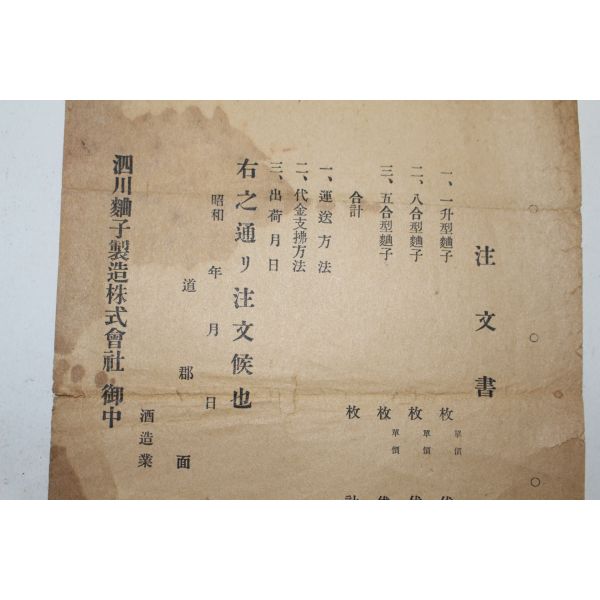 注文書
一、一升型麯子 枚 單價
二、八合型麯子 枚 單價
三、五合型麯子 枚 單價
合計 枚 計
一、運送方法
二、代金支拂方法
三、出荷月日
右之通リ注文候也
昭和 年 月 日
道 郡 面
酒造業
泗川麯子製造株式會社 御中